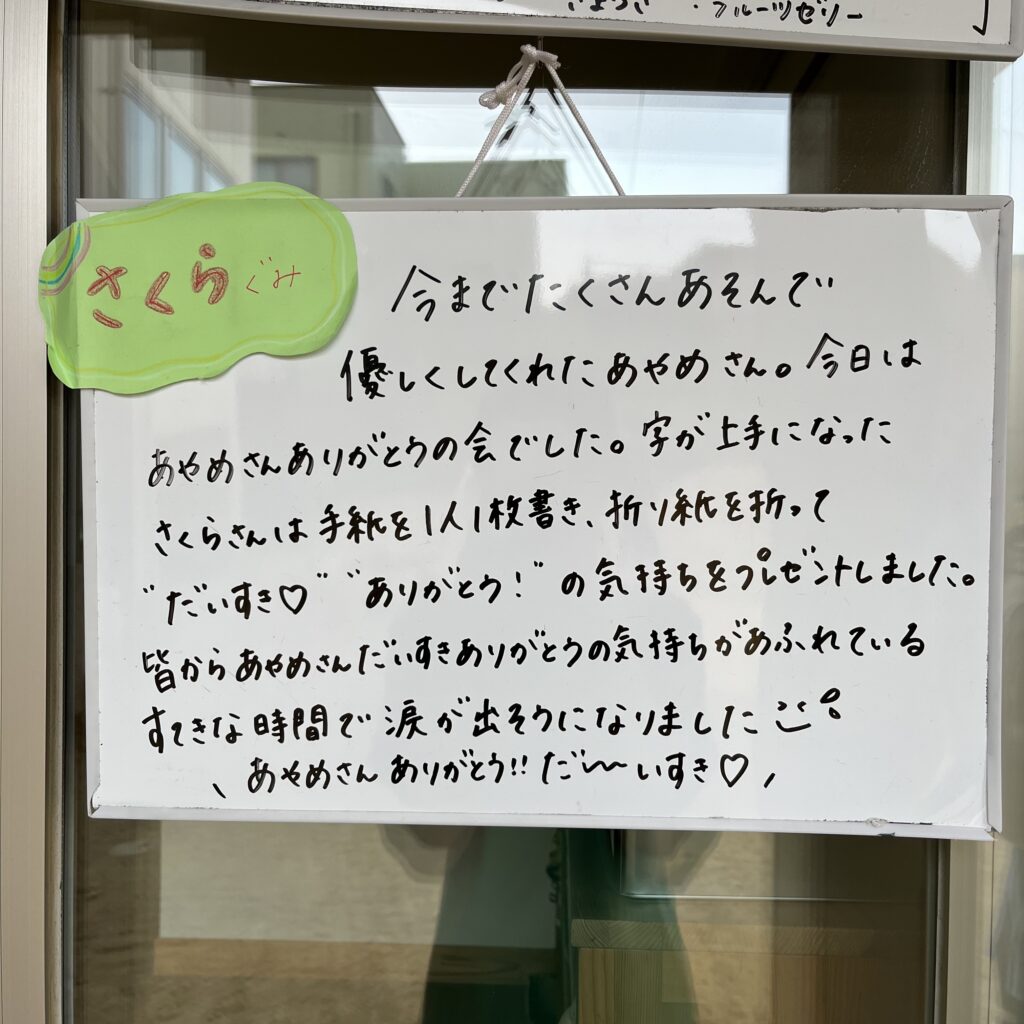 ・フルーツゼリー
さくらぐみ
今までたくさんあそんで
優しくしてくれたあやめさん。今日は
あやめさんありがとうの会でした。字が上手になった
さくらさんは手紙を1人1枚書き、折り紙を折って
"だいすき♡" "ありがとう!"の気持ちをプレゼントしました。
皆からあやめさんだいすきありがとうの気持ちがあふれている
すてきな時間で涙が出そうになりました
\ あやめさんありがとう!!だ〜いすき♡ /